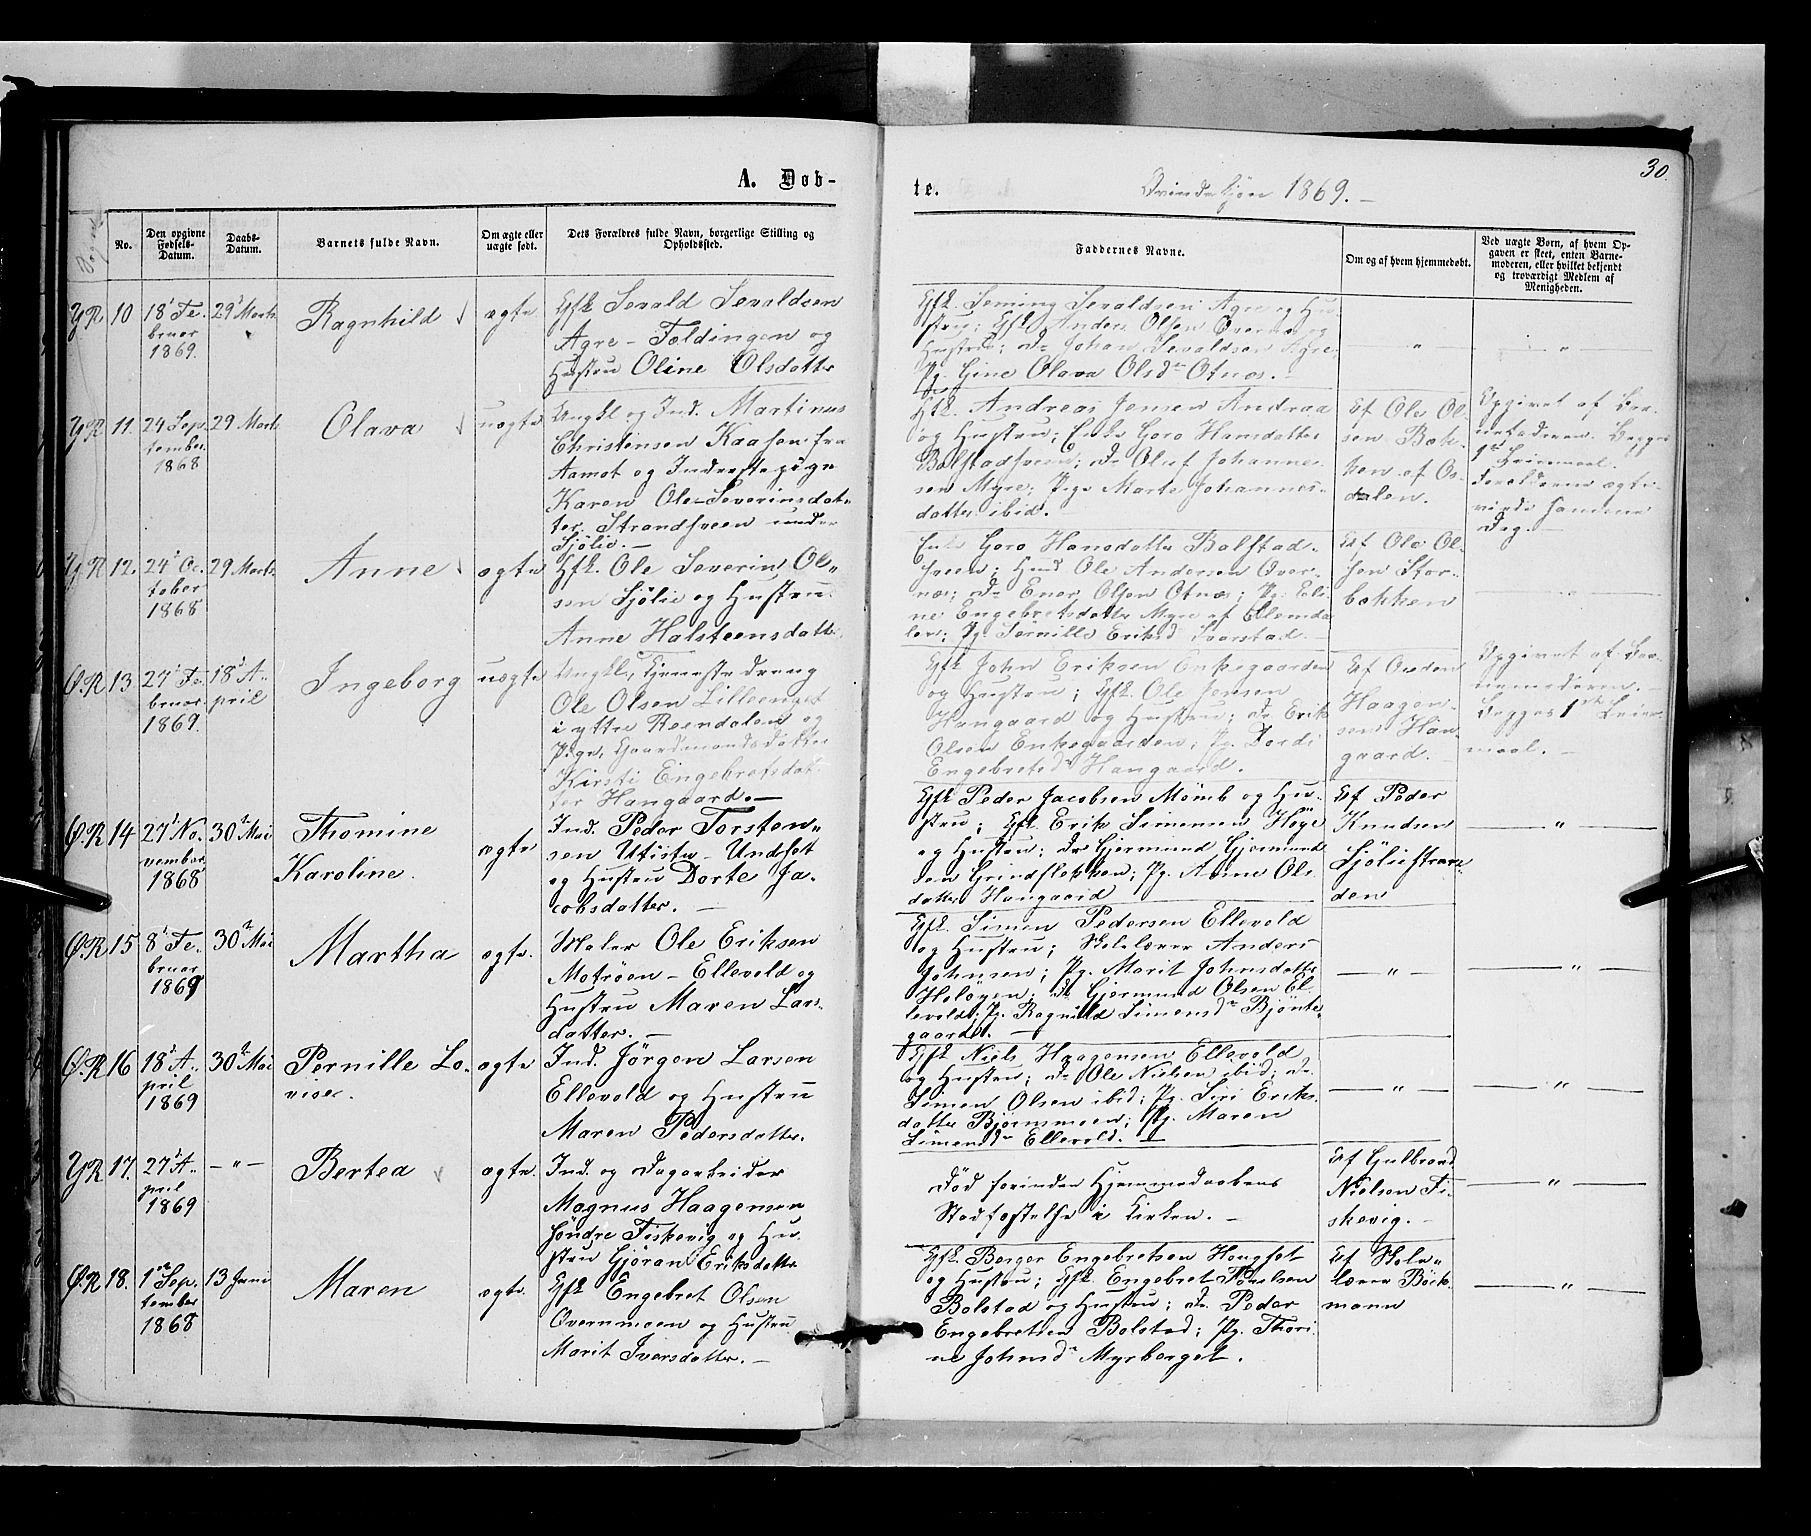 A. Døb-
te.
Qvindekjøn 1869.
30.
No.
Den opgivne Fødsels-Datum.
Daabs-Datum.
Barnets fulde Navn.
Om ægte eller uægte født.
Dets Forældres fulde Navn, borgerlige Stilling og Opholdssted.
Faddernes Navne.
Om og af hvem hjemmedøbt.
Ved uægte Børn, af hvem Opgaven er skeet, enten Barnemoderen, eller hvilket bekjendt og troværdigt Medlem af Menigheden.
Y.R. 10 18' Fe-
bruar
1869.
29' Marts
Ragnhild
ægte
Gfk Sevald Sevaldsen
Agre - Foldingen og
Hustru Oline Olsdatter
Gfk. Seming Sevaldsen Agre og Hu-
stru; Gfk. Anders Olsen Overnes og
Hustru; Do Johan Sevaldsen Agre
Pg. Gine Olava Olsdr Otnes. -
— " —
— " —
Y.R. 11. 24 Sep-
tember
1868
29 Marts
Olava
uægte
Ungkl og Ind. Martinus
Christensen Kaasen fra
Aamot og Inderstepige
Karen Ole-Severinsdat-
ter Strandsveen under
Sjölie. —
Gfk. Andreas Jensen Andraa
og Hustru; Enke Goro Hansdatter
Bolstadsveen; Do Oluf Johannes-
sen Myre; Pige Marte Johannes-
datter ibid.
Af Ole Ol-
sen Bek-
ken af Os-
dalen.
Opgivet af Bar-
nefaderen. Begges
1ste Leiermaal.
Forældrene ægte-
viede samme
Dag. -
Y.R. 12. 24' Oc-
tober
1868
29 Marts
Anne
ægte
Gfk. Ole Severin Ol-
sen Sjölie og Hustru
Anne Halsteensdatter
Enke Goro Hansdatter Bolstad-
sveen; Gmd Ole Andersen Over-
nes; Do Ener Olsen Otnes; Pg. Eli-
ne Engebretsdatter Myre af Elvenda-
len; Pg. Pernille Eriksd
Af Ole Ol-
sen Stor-
bekken
Ø.R 13 27' Fe-
bruar
1869.
18' A-
pril
Ingeborg
uægte
Ungkl, Tjenestedreng
Ole Olsen Lilleenget
i yttre Rendalen og
Pige, Gaardmandsdatter
Kirsti Engebretsdat-
ter Hangaard. —
Gfk John Eriksen Enkegaarden
og Hustru; Gfk. Ole Jensen
Hangaard og Hustru; Do Erik
Olsen Enkegaarden; Pg. Dordi
Engebretsdr Hangaard.
Af Ovedon
Haagen-
sen Han-
gaard.
Opgivet af Bar-
nemoderen. -
Begges 1ste Leier-
maal. -
Ø.R 14 27' No-
vember
1868
30' Mai
Thomine
Karoline.
ægte
Ind. Peder Torsten-
sen Utistu - Undset
og Hustru Dorte Ja-
cobsdatter. —
Gfk Peder Jacobsen Mömb og Hu-
stru; Gfk. Erik Simensen Høye
og Hustru; Do Gjermund Gjermund-
sen Grindflekken; Pg. Anne Ols-
datter Hangaard
Af Peder
Knudsen
Sjöliestran-
den
— " —
Ø.R 15 8' Fe-
bruar
1869
30' Mai
Martha
ægte.
Maler Ole Eriksen
Moträen - Ellevold og
Hustru Maren Lars-
datter. —
Gfk. Simen Pedersen Ellevold
og Hustru; Skolelærer Anders
Johnsen; Pg. Marit Johnsdatter
Holøyen; Do Gjermund Olsen El-
levold; Pg. Ragnild Simensdr Bjönte-
gaardet. —
— " —
— " —
Ø.R 16 18' A-
pril
1869
30' Mai
Pernille Lo-
vise.
ægte
Ind. Jörgen Larsen
Ellevold og Hustru
Maren Pedersdatter.
Gfk Niels Haagensen Ellevold
og Hustru; Do Ole Nielsen ibid; Do
Simen Olsen ibid; Pg. Siri Eriks-
datter Bjørnmoen; Pg. Maren
Simensdr Ellevold. —
— " —
— " —
Y.R 17. 27' A-
pril
1869
— " —
Bertea
ægte.
Ind. og Dagarbeider
Magnus Haagensen
Söndre Fiskevig og Hu-
stru Gjöran Eriksdatter
Död forinden Hjemmedaabens
Stadfæstelse i Kirken. —
Af Gulbrand
Nielsen Fi-
skevig. -
— " —
Ø.R 18. 1ste Sep-
tember
1868
13 Juni
Maren
ægte.
Gfk Engebret Olsen
Overnmoen og Hustru
Marit Iversdatter. —
Gfk. Berger Engebretsen Haugset
og Hustru; Gfk. Engebret Poulsen
Bolstad og Hustru; Do. Peder
Engebretsen Bolstad; Pg. Thori-
ne Johnsdr Myrberget.
Af Skole-
lærer Böck-
mann
— " —